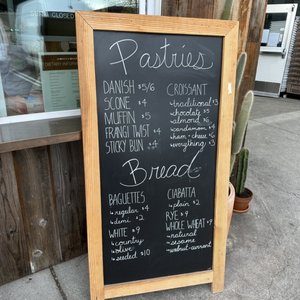 CLOSED
Pastries
DANISH $5/6
SCONE $4
MUFFIN $5
FRANGI TWIST $4
STICKY BUN $4
CROISSANT
↳traditional $3
↳chocolate $5
↳almond $6
↳cardamom $4
↳ham+cheese $6
↳everything $3
Bread
BAGUETTES
↳regular $4
↳demi $2
WHITE $9
↳country
↳olive
↳seeded $10
CIABATTA
↳plain $2
RYE $9
WHOLE WHEAT $9
↳natural
↳sesame
↳walnut-currant